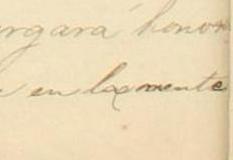 argará honor
en la mente